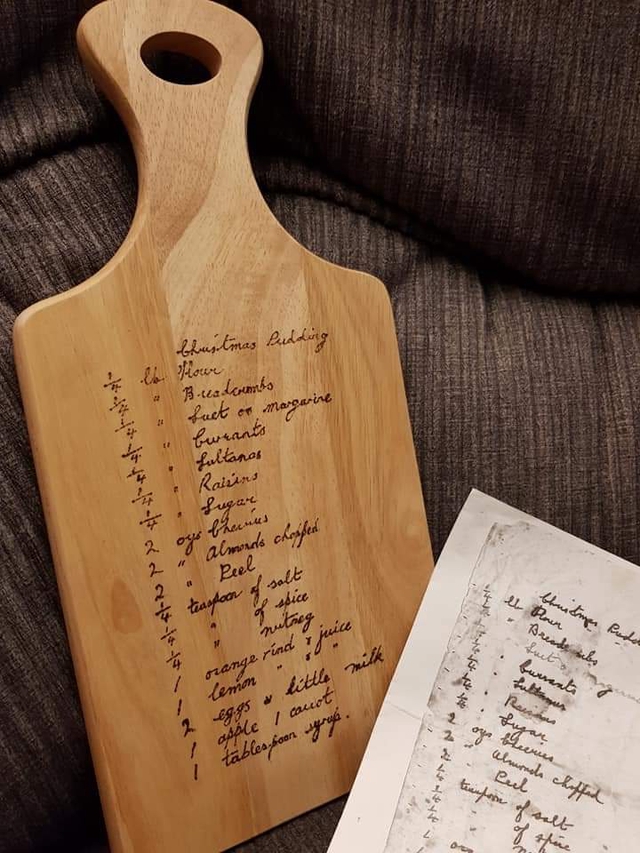 Christmas Pudding
1/4 lb Flour
1/4 " Breadcrumbs
1/4 " Suet or margarine
1/4 " Currants
1/4 " Sultanas
1/4 " Raisins
1/4 " Sugar
2 ozs Cherries
2 " Almonds chopped
2 " Peel
1/4 teaspoon of salt
1/4 " of spice
1/4 " nutmeg
1 orange rind & juice
1 lemon " " "
2 eggs & little milk
1 apple 1 carrot
1 tablespoon syrup.
Christmas
1/4 lb Flour
1/4 "
1/4 " Suet
1/4 " Currants
1/4 " Sultanas
1/4 " Raisins
1/4 " Sugar
2 ozs Cherries
2 " Almonds chopped
2 " Peel
1/4 teaspoon of salt
1/4 " of spice
1/4 "
1